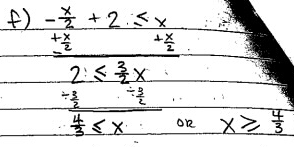 f) -x/2 + 2 ≤ x
+x/2 +x/2
2 ≤ 3/2 x
÷3/2 ÷3/2
4/3 ≤ x OR x ≥ 4/3